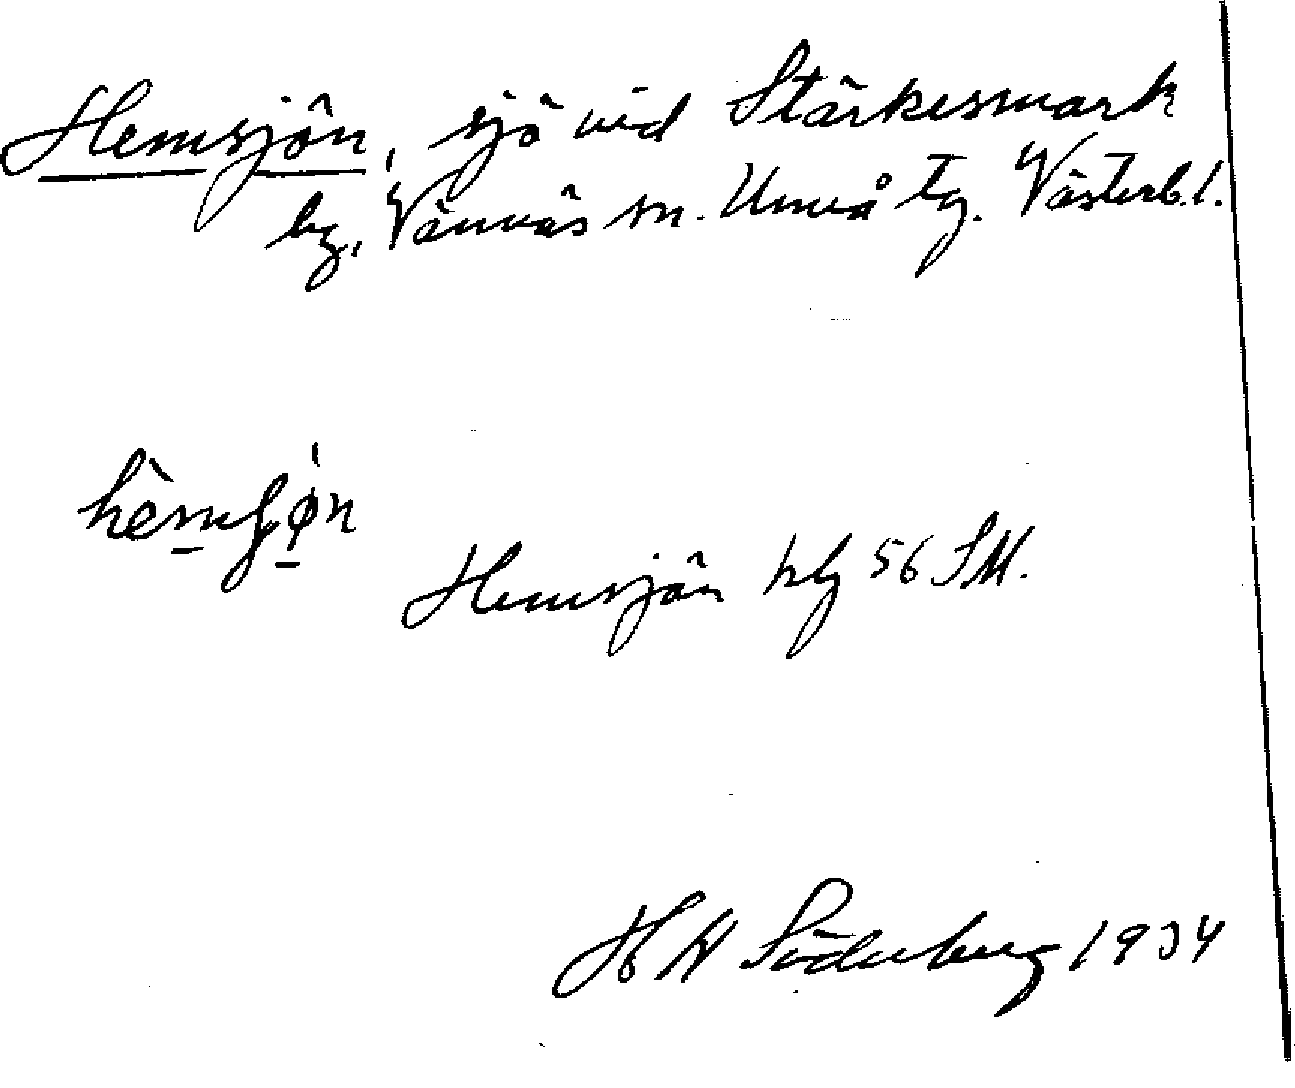 Hemsjön, sjö vid Stärkesmark
by, Vännäs sn. Umeå tg. Västerb. l.
Hemsjön bl 56 SM.
H W Söderberg 1934